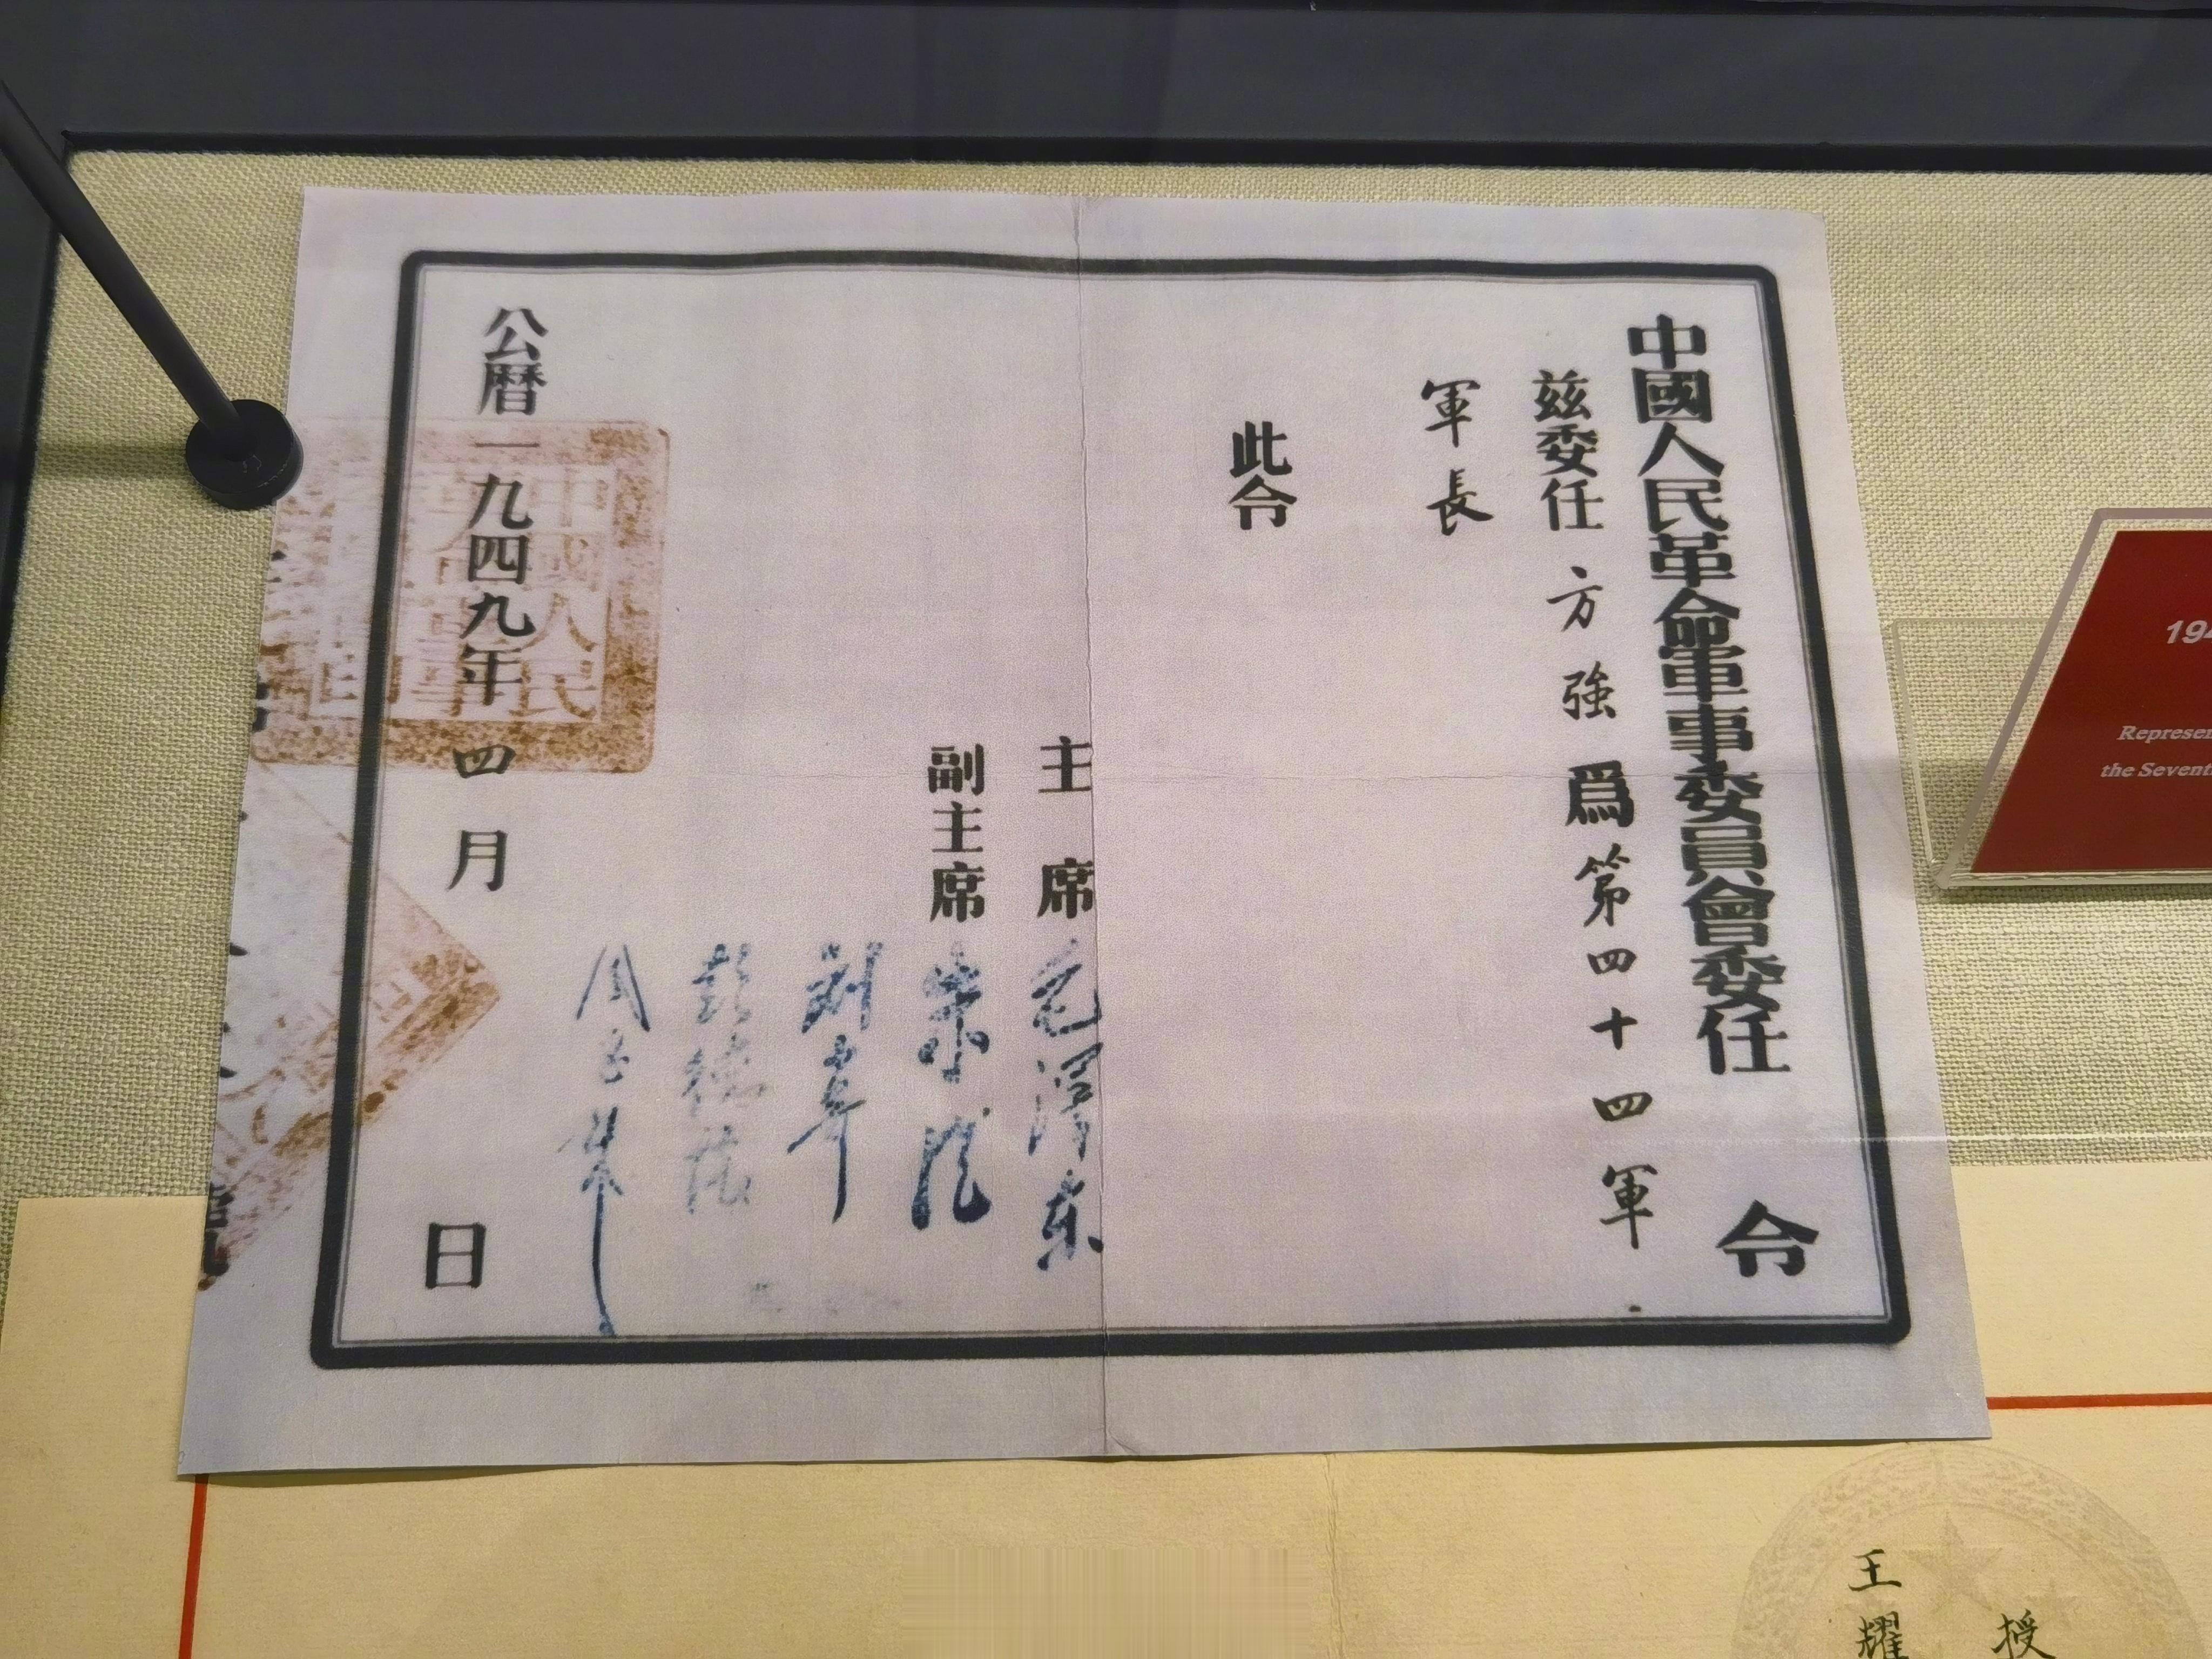 中國人民革命軍事委員會委任令
茲委任方強爲第四十四軍
軍長
此令
主席 毛澤东
副主席 朱德
刘少奇
彭德懷
周恩来
公曆一九四九年四月 日
中國人民
革命軍事
印
194
Represen
the Sevent
授
王耀